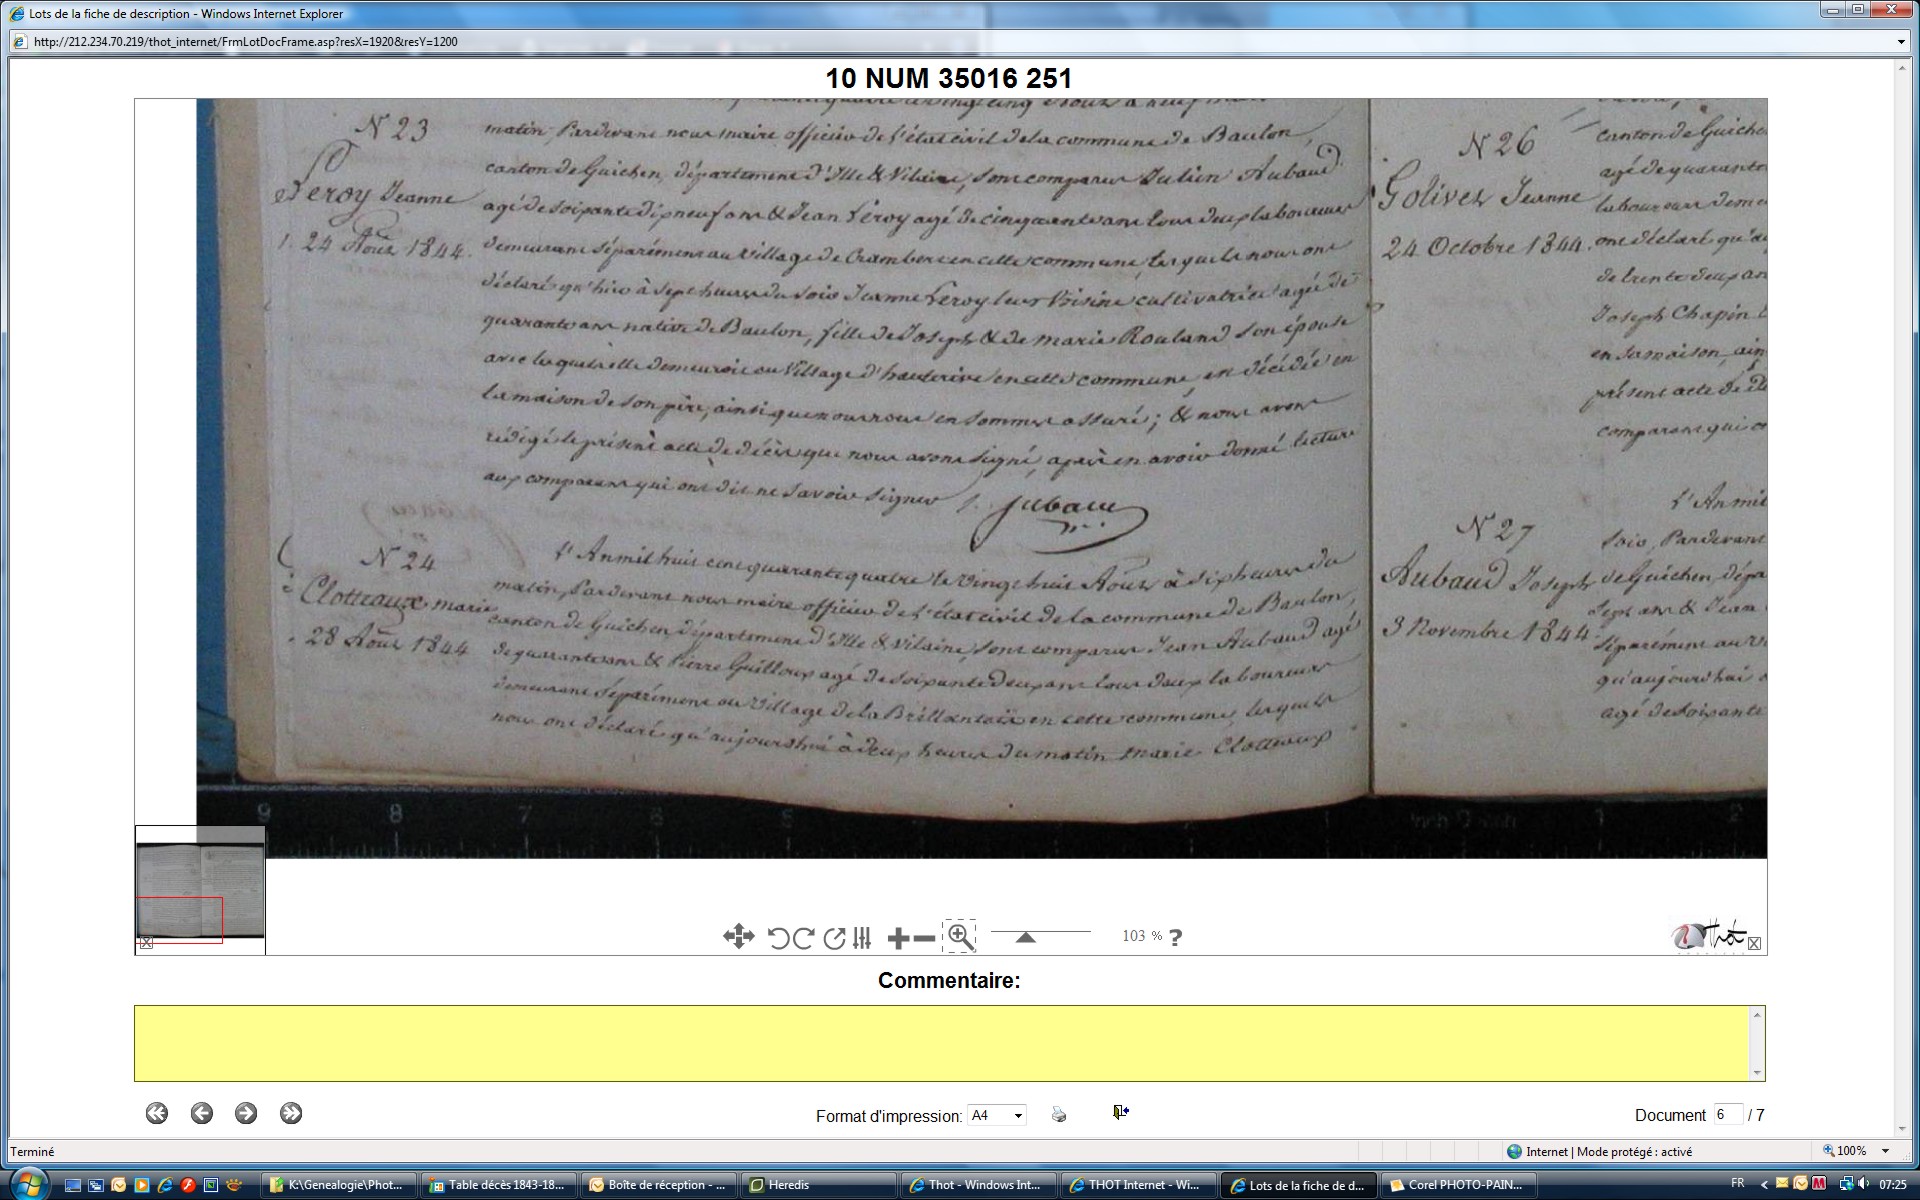 Lots de la fiche de description - Windows Internet Explorer
http://212.234.70.219/thot_internet/FrmLotDocFrame.asp?resX=1920&resY=1200
10 NUM 35016 251
N 23
Leroy Jeanne
24 Août 1844.
matin, Pardevant nous maire officier de l'état civil de la commune de Baulon,
canton de Guichen, département d'Ille & Vilaine, sont comparus Julien Aubaud
agé de soixante dix neuf ans & Jean Leroy agé de cinquante ans tous deux laboureurs
demeurant séparément au village de en cette commune, lesquels nous ont
déclaré qu'hier à sept heures du soir Jeanne Leroy leur Voisine cultivatrice agée de
quarante ans native de Baulon, fille de Joseph & de marie Rouland son épouse
avec lesquels elle demeuroit au Village d'hauterive en cette commune, en décédée en
la maison de son père, ainsi que nous nous en sommes assuré; & nous avons
rédigé le présent acte de décès que nous avons signé, après en avoir donné lecture
aux comparans qui ont dit ne savoir signer
N 24
Clotteaux marie
28 Août 1844
l'An mil huit cent quarante quatre le vingt huit Août à six heures du
matin, Pardevant nous maire officier de l'état civil de la commune de Baulon,
canton de Guichen, département d'Ille & Vilaine, sont comparus Jean Aubaud agé
de quarante ans & Pierre Guilloux agé de soixante deux ans tous deux laboureurs
demeurant séparément au Village de la en cette commune, lesquels
nous ont déclaré qu'aujourd'hui à deux heures du matin marie Clotteaux
N 26
Golivet Jeanne
24 Octobre 1844.
canton de Guiche
agé de quarante
laboureurs deme
ont déclaré qu'au
de trente deux an
Joseph Chapin
en sa maison, ain
présent acte de dé
comparans qui o
N 27
Aubaud Joseph
3 Novembre 1844.
l'An mil
soir, Pardevant
de Guichen, dépa
sept ans & Jean
séparément au V
qu'aujourd'hui
agé de soixante
9 8 7 6
103 % ?
Thot
Commentaire:
Format d'impression: A4
Document 6 / 7
Terminé
Internet | Mode protégé : activé
100%
K:\Genealogie\Phot...
Table décès 1843-18...
Boîte de réception - ...
Heredis
Thot - Windows Int...
THOT Internet - Wi...
Lots de la fiche de d...
Corel PHOTO-PAIN...
FR
07:25